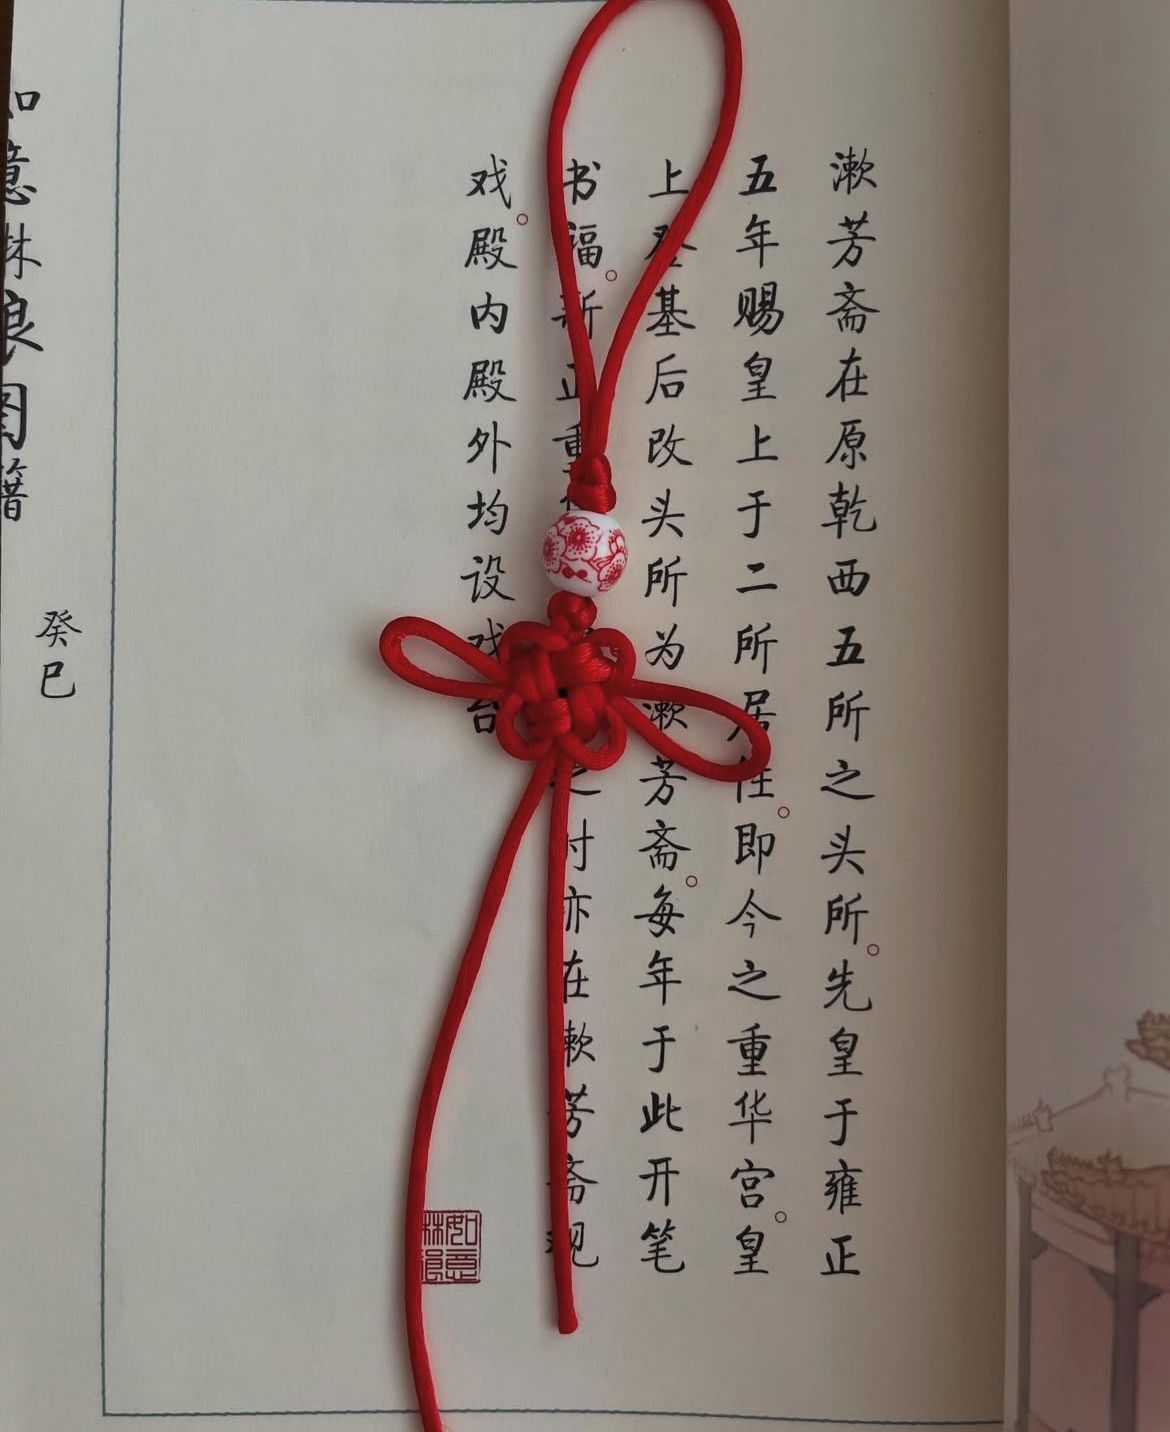 漱芳斋在原乾西五所之头所。先皇于雍正
五年赐皇上于二所居住。即今之重华宫。皇
上登基后改头所为漱芳斋。每年于此开笔
书福。新正重
之时亦在漱芳斋观
戏。殿内殿外均设戏台
如意
琳琅
如意琳琅图籍
癸巳